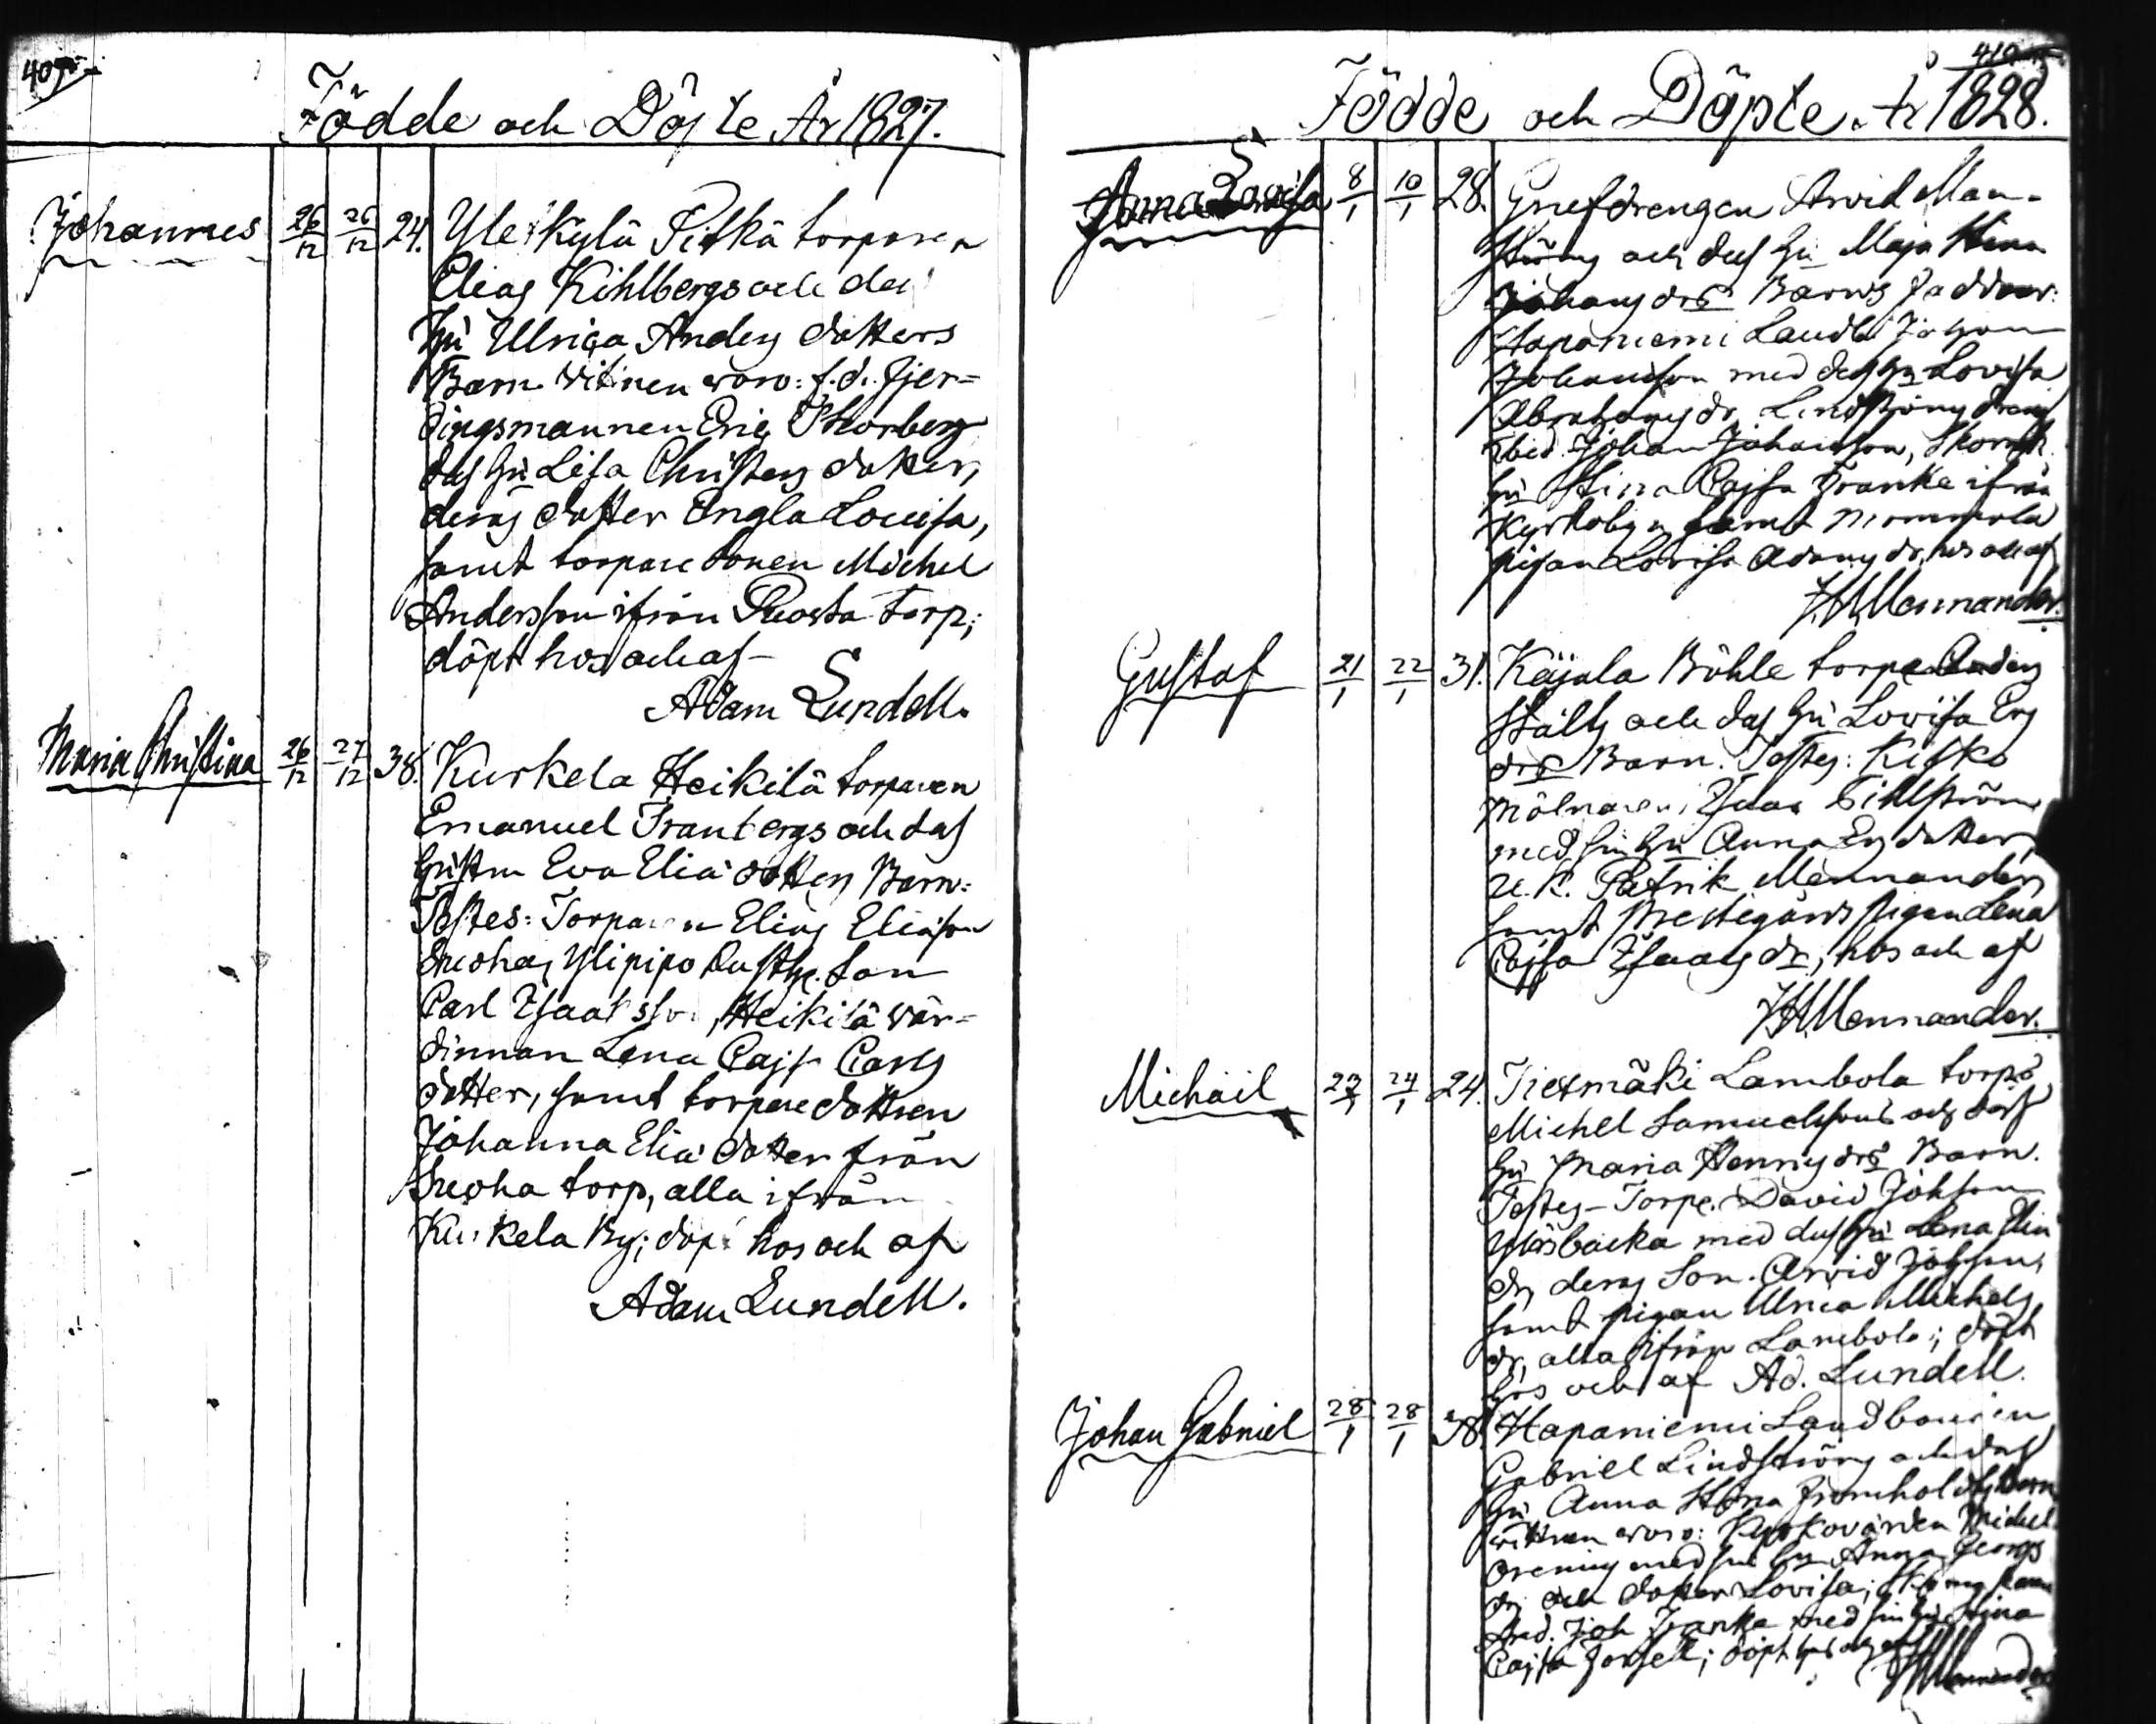 409
Födde och Döpte År 1827.
Johannes 26/12 26/12 24. Yle Kylä Pitkä torparen
Elias Kihlbergs och des
hu Ulrica Anders dotters
Barn. Vitnen woro: f.d. fjer=
dingsmannen Eric Thorberg
das hu Lisa Christers dotter,
deras dotter Engla Lovisa,
samt torparesonen Michel
Andersson ifrån Ruosta torp;
döpt hos och af
Adam Lundell.
Maria Christina 26/12 27/12 38. Kurkela Heikilä torparen
Emanuel Tranbergs och das
hustru Eva Elia dotters Barn.
Testes: Torparen Elias Eliasson
Ylipipo Rusth. Son
Carl Isaaksson, Heikilä vär=
dinnan Lena Cajsa Carls
dotter, samt torparedottren
Johanna Elia dotter från
torp, alla ifrån
Kurkela By; döpt hos och af
Adam Lundell.
Födde och Döpte År 1828.
Anna Lovisa 8/1 10/1 28. Grufdrengen Arvid Man=
ström och das hu Maja Stina
Johans drs Barns Faddrar:
Haponiemi Landb. Johan
Johansson med das hu Lovisa
Abrahams dr, Lindströms dreng
ibid. Johan Johansson,
hu Stina Cajsa Franke ifrån
Kyrkobyn samt Nommola
pigan Lovisa Adams dr, hos och af
Mennander.
Gustaf 21/1 22/1 31. Käjala Böhle torpe Anders
Ståls och das hu Lovisa Ers
drs Barn. Testes: Kisko
Mölnaren Isaac Tihlström
med sin hu Anna Ers dotter,
Patrik Mennander
samt Prestegårds pigan Lena
Cajsa Isaacs dr, hos och af
Mennander.
Michaël 23/1 24/1 24. Tiexmäki Lambola torps
Michel Samuelssons och das
hu Maria Henrics drs Barn.
Testes - Torpe. David Johsson
med das hu Lena Elia
dr, deras Son Arvid Johsson,
samt pigan Ulrica Michels
dr, alla ifrån Lambola; döpt
hos och af Ad. Lundell.
Johan Gabriel 28/1 28/1 38. Hapaniemi Landbonden
Gabriel Lindströms och das
hu Anna Stina Fromholds drs Barn
vittnen woro: Kyrkovärden Michel
med sin hu Anna Georgs
dr och dotter Lovisa;
Joh Franke med sin hu Stina
Cajsa Forsell; döpt hos och af
Mennander